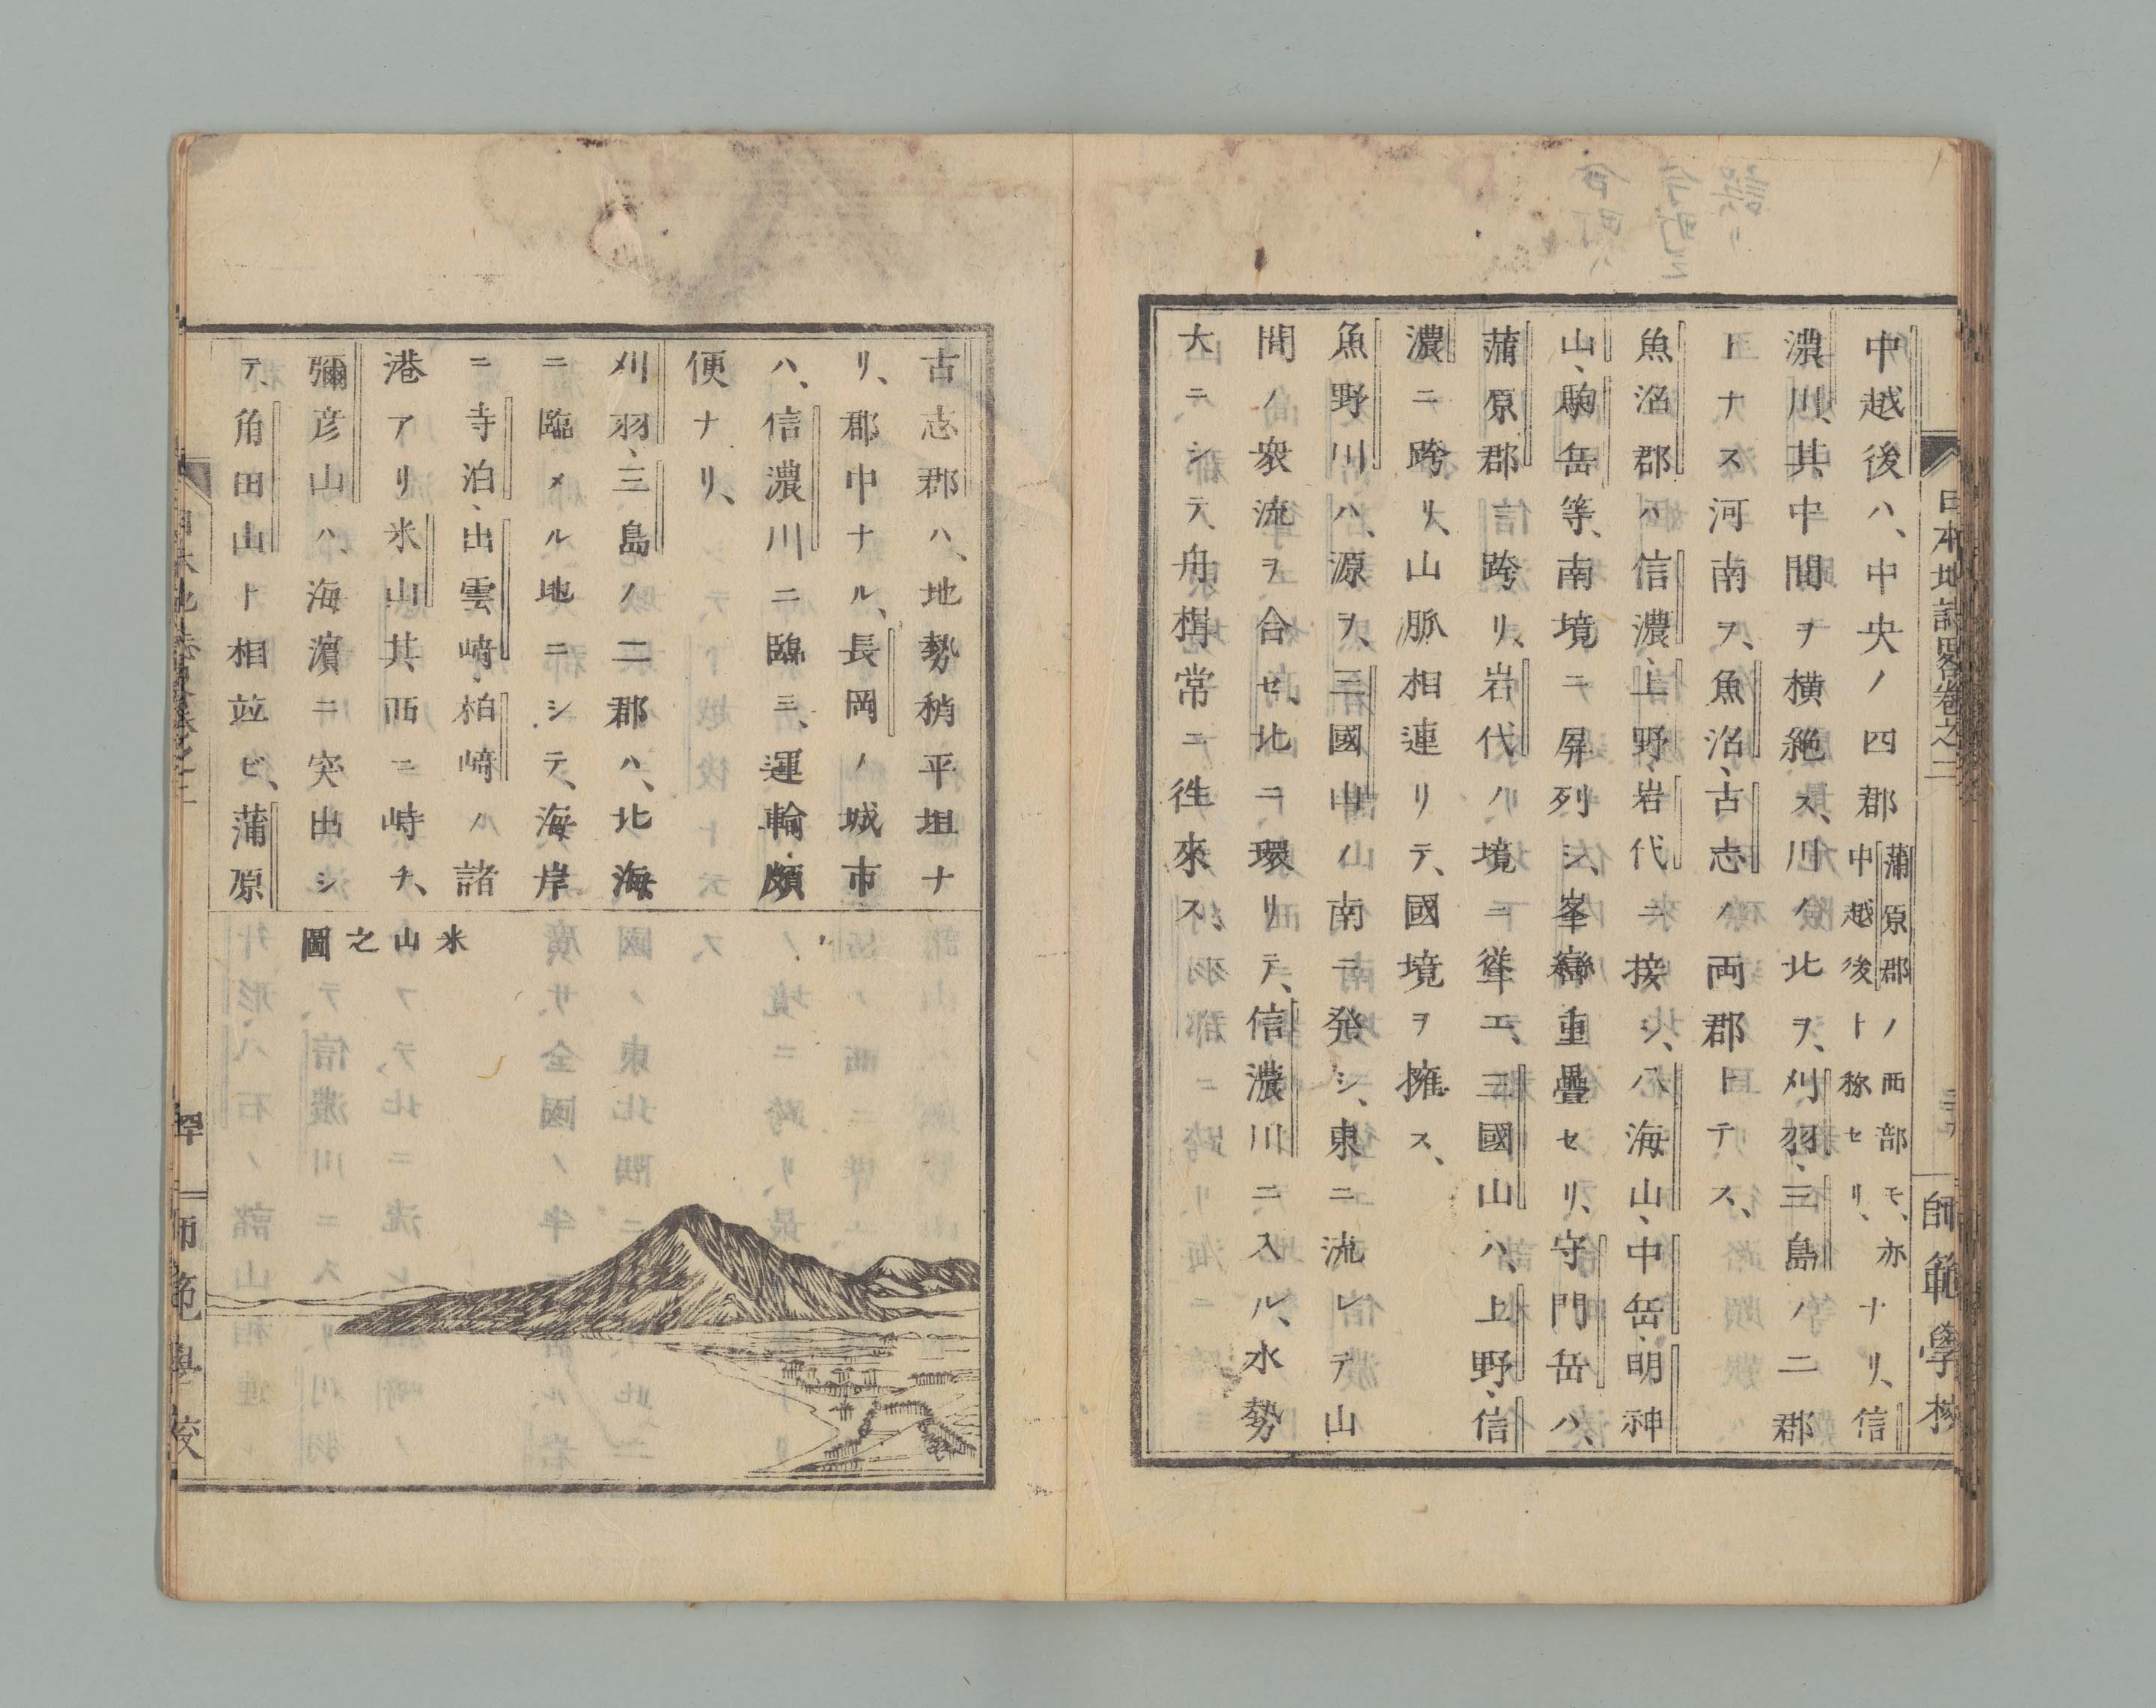 日本地誌畧卷之二
師範學校
中越後ハ、中央ノ四郡蒲原郡ノ西部モ、亦中越後ト称セリ、ナリ、信
濃川、其中間ヲ横絶ス、川ノ北ヲ、刈羽、三島ノ二郡
トナス河南ヲ、魚沼、古志ノ両郡トテス、
魚沼郡ハ信濃、上野、岩代ニ接シ、八海山、中岳、明神
山、駒岳等、南境ニ屏列シ、峯巒重疊セリ、守門岳ハ、
蒲原郡ニ跨リ、岩代ノ境ニ聳エ、三國山ハ、上野、信
濃ニ跨リ、山脈相連リテ、國境ヲ擁ス、
魚野川ハ、源ヲ、三國山ノ南ニ発シ、東ニ流レテ山
間ノ衆流ヲ合セ、北ニ環リテ、信濃川ニ入ル、水勢
大ニシテ、舟楫常ニ徃來ス
古志郡ハ、地勢稍平坦ナ
リ、郡中ナル、長岡ノ城市
ハ、信濃川ニ臨ミ、運輸、頗
便ナリ、
刈羽、三島ノ二郡ハ、北海
ニ臨メル地ニシテ、海岸
ニ寺泊、出雲﨑、柏﨑ノ諸
港アリ米山其西ニ峙チ、
彌彦山ハ、海濵ニ突出シ
テ、角田山ト相竝ビ、蒲原
米山之圖
師範學校